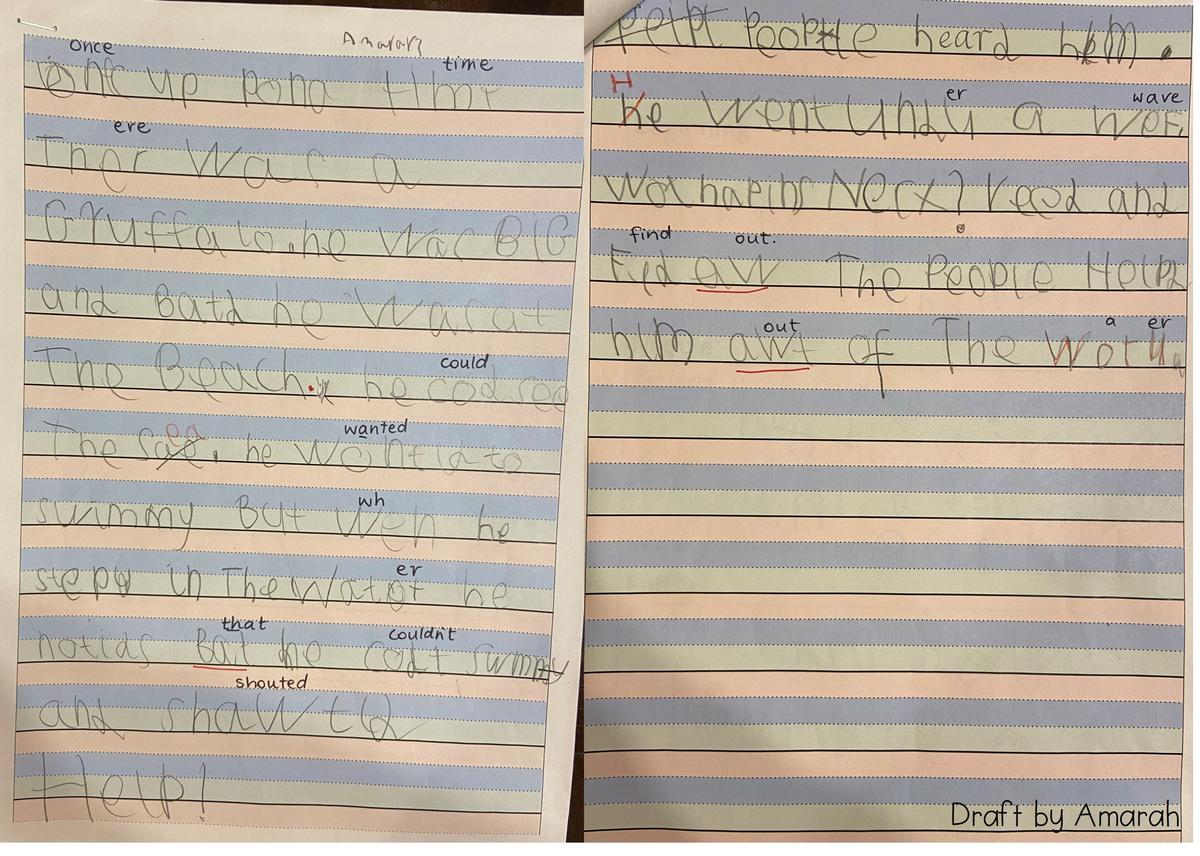 Amarah
once
time
onc up pona timt
ere
Ther Was a
Gruffalo. he was BIG
and Batd he Was at
could
The Beach. he cod see
ea
wanted
The sae. he wontid to
wh
swimmy But wen he
er
stepd in The Watot he
that
couldn't
notids Bat he codt swimmy
shouted
and shawtid
Help!
People heard him.
H
er
wave
he went undu a wef
wot hapins Next? reed and
find
out.
Fyd aw The People Help
out
a
er
him awt of The wotu
Draft by Amarah